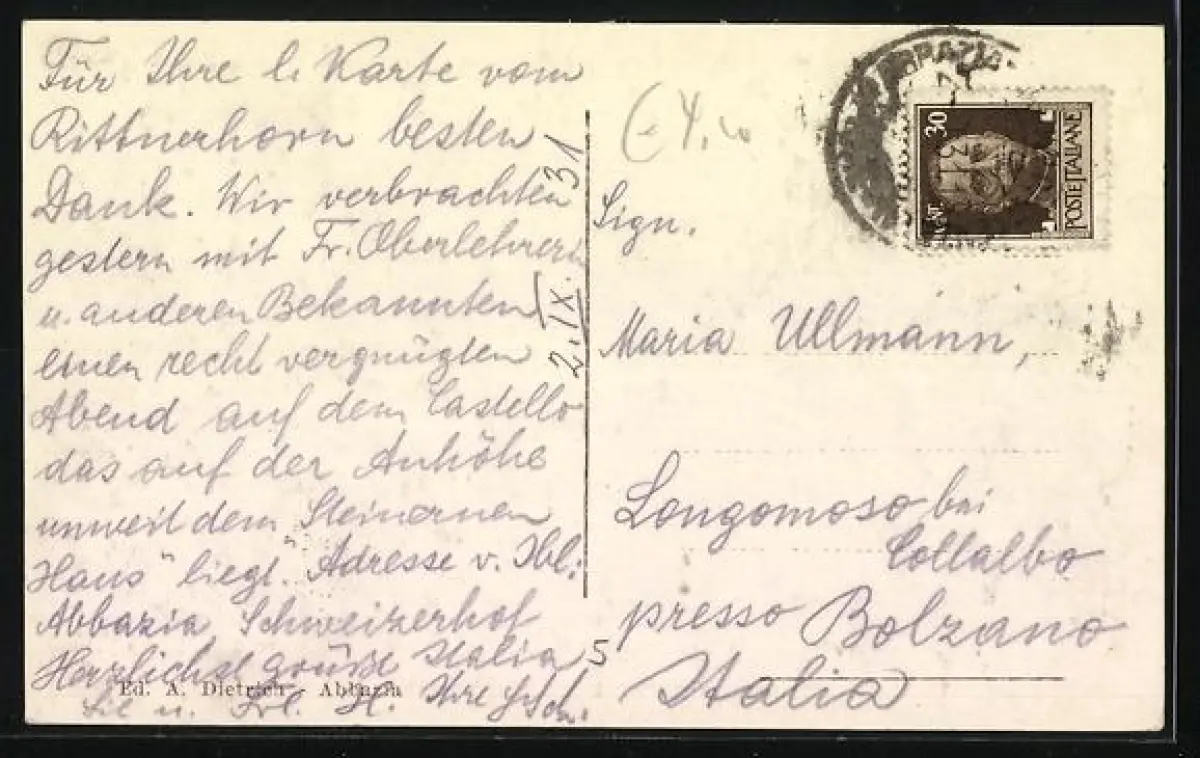 Für Ihre l. Karte vom
Rittnerhorn besten
Dank. Wir verbrachten
gestern mit Fr. Oberlehrerin
u. anderen Bekannten
einen recht vergnügten
Abend auf dem Castello
das auf der Anhöhe
unweit dem „Steinernen
Haus" liegt. Adresse v. Ibl:
Abbazia, Schweizerhof
Herzlichst grüßt Italia
Sie u. Frl. H. Ihre
Ed. A. Dietrich - Abbazia
2. IX. 31
5
Sign.
Maria Ullmann,
Longomoso bei
Collalbo
presso Bolzano
Italia
ABBAZIA
30
POSTE ITALIANE